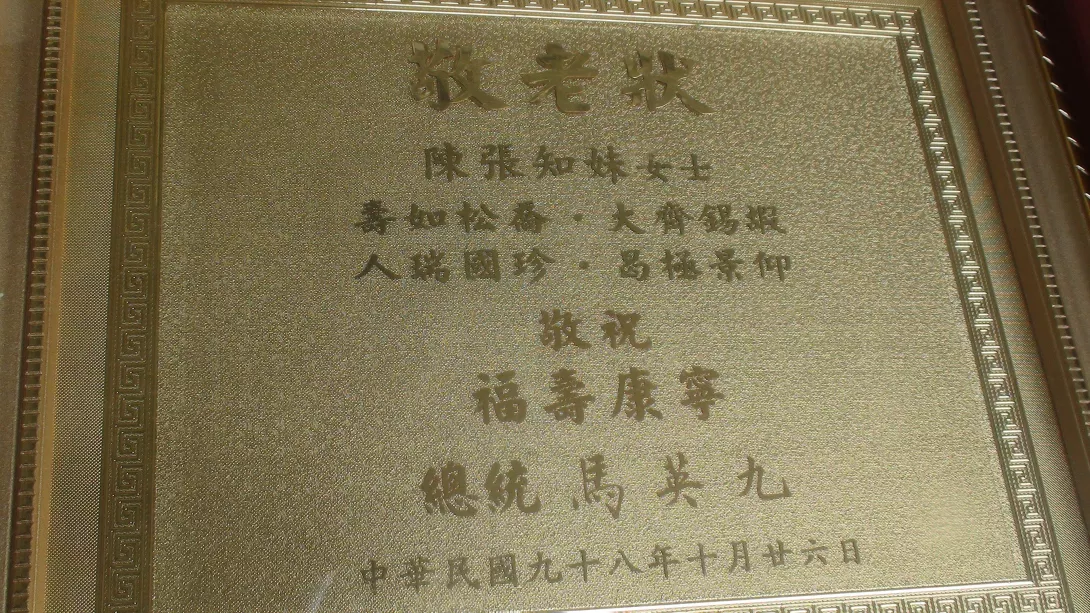 敬老狀
陳張知妹女士
壽如松喬・大齊錫嘏
人瑞國珍・曷極景仰
敬祝
福壽康寧
總統 馬英九
中華民國九十八年十月廿六日